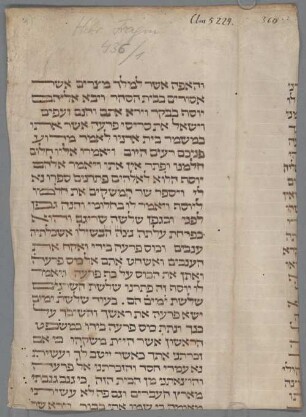 Clm 5229.
Hebr. Fragm.
והאפה אשר למלך מצרים אשר
אסורים בבית הסהר ויבא אליהם
יוסף בבקר וירא אתם והנם זעפים
וישאל את סריסי פרעה אשר אתו
במשמר בית אדניו לאמר מדוע
פניכם רעים היום ויאמרו אליו חלום
חלמנו ופתר אין אתו ויאמר אלהם
יוסף הלוא לאלהים פתרנים ספרו נא
לי ויספר שר המשקים את חלמו
ליוסף ויאמר לו בחלומי והנה גפן
לפני ובגפן שלשה שריגם והוא
כפרחת עלתה נצה הבשילו אשכלתיה
ענבים וכוס פרעה בידי ואקח את
הענבים ואשחט אתם אל כוס פרעה
ואתן את הכוס על כף פרעה ויאמר
לו יוסף זה פתרנו שלשת השרגים
שלשת ימים הם בעוד שלשת ימים
ישא פרעה את ראשך והשיבך על
כנך ונתת כוס פרעה בידו כמשפט
הראשון אשר היית משקהו כי אם
זכרתני אתך כאשר ייטב לך ועשית
נא עמדי חסד והזכרתני אל פרעה
והוצאתני מן הבית הזה כי גנב גנבתי
מארץ העברים וגם פה לא עשיתי
מאומה כי שמו אתי בבור וירא שר